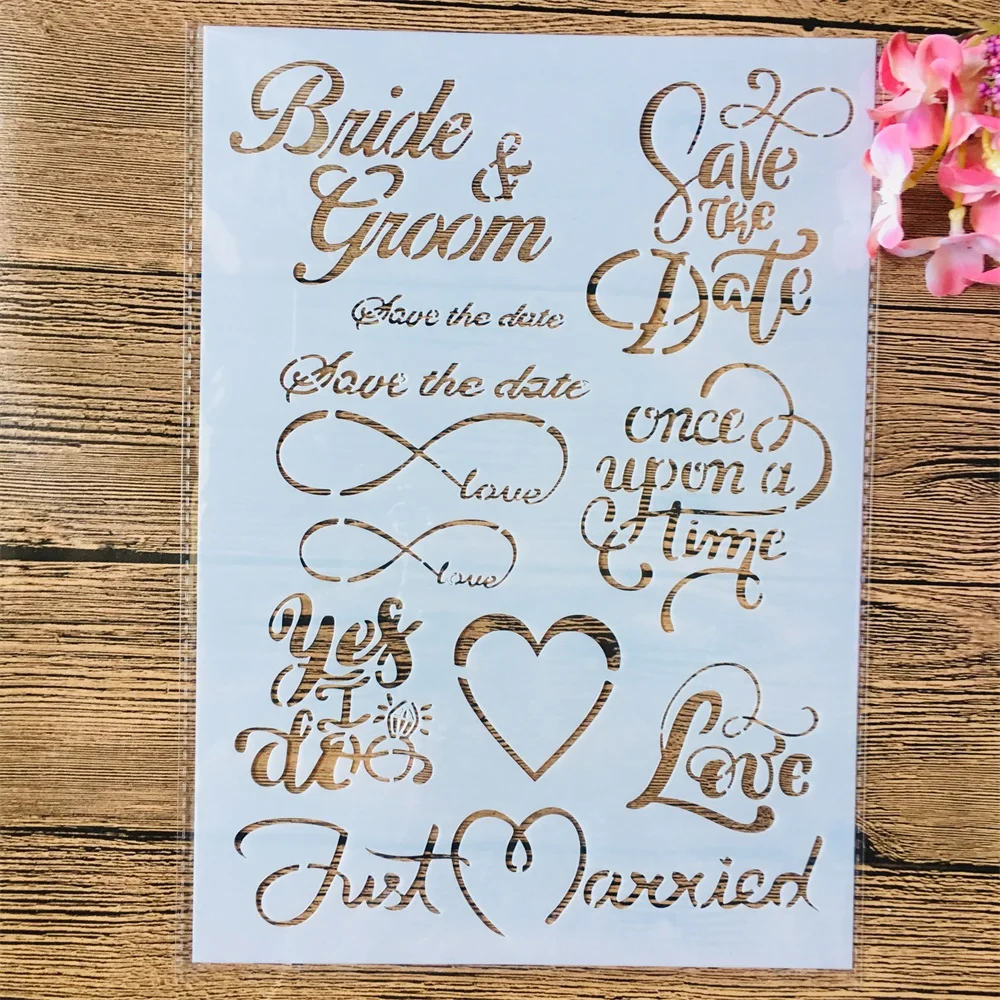 Bride
&
Groom
Save
The
Date
Save the date
Save the date
love
love
once
upon a
time
Yes
I
do
Love
Just Married